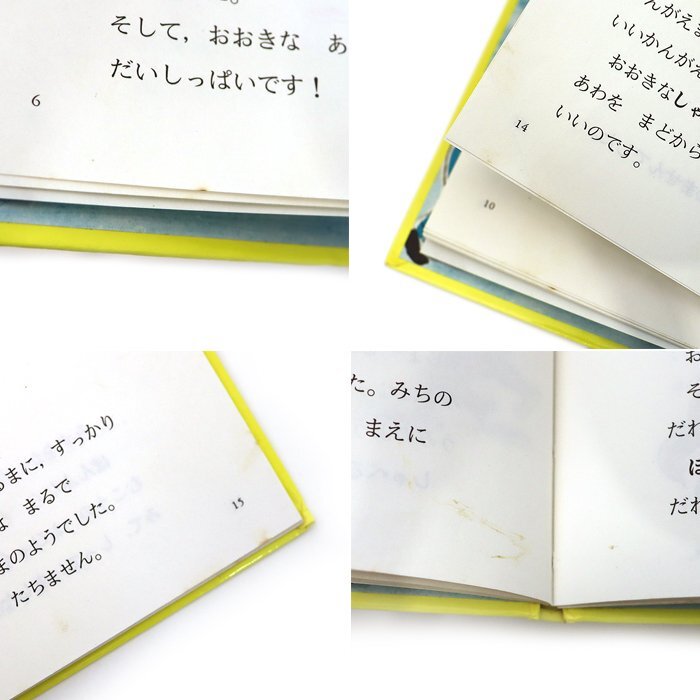 そして，おおきな　あ
だいしっぱいです！
6
んがえ
いいかんがえ
おおきなしゃ
あわを　まどから
いいのです。
14
10
るまに，すっかり
は　まるで
まのようでした。
たちません。
15
た。みちの
まえに
お
そ
だれ
ほ
だれ